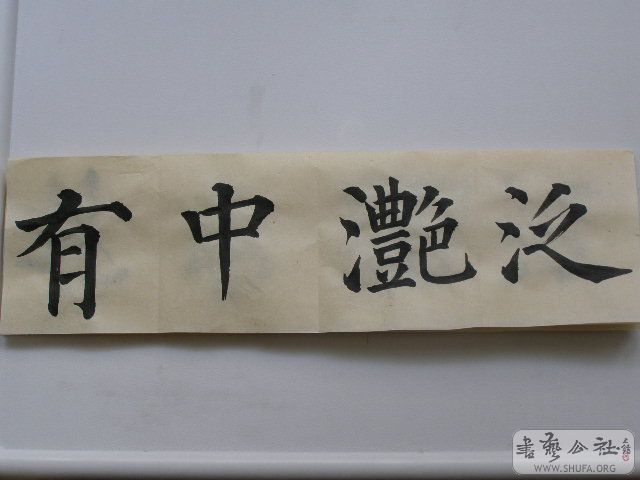 泛灔中有
書藝公社
WWW.SHUFA.ORG